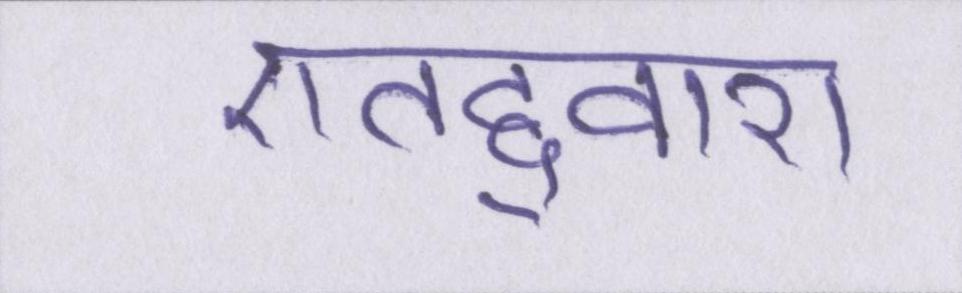 एतद्द्वारा